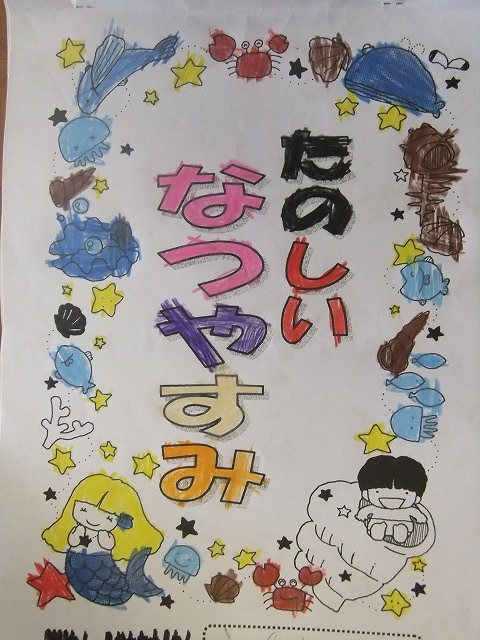 たのしい
なつやすみ